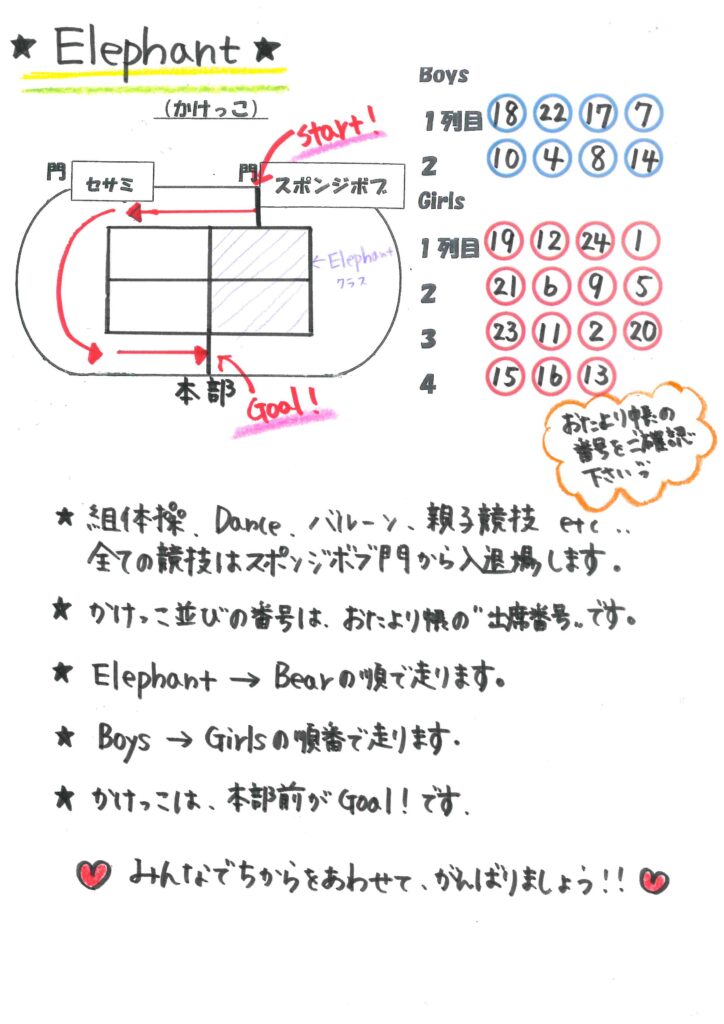 ★ Elephant ★
(かけっこ)
start!
門 セサミ
門 スポンジボブ
←Elephant
クラス
本部
Goal!
Boys
1列目 18 22 17 7
2 10 4 8 14
Girls
1列目 19 12 24 1
2 21 6 9 5
3 23 11 2 20
4 15 16 13
おたより帳の
番号をご確認
下さい
★ 組体操、Dance、バルーン、親子競技 etc..
全ての競技はスポンジボブ門から入退場します。
★ かけっこ並びの番号は、おたより帳の"出席番号"です。
★ Elephant → Bearの順で走ります。
★ Boys → Girlsの順番で走ります.
★ かけっこは、本部前がGoal!です.
みんなでちからをあわせて、がんばりましょう!!